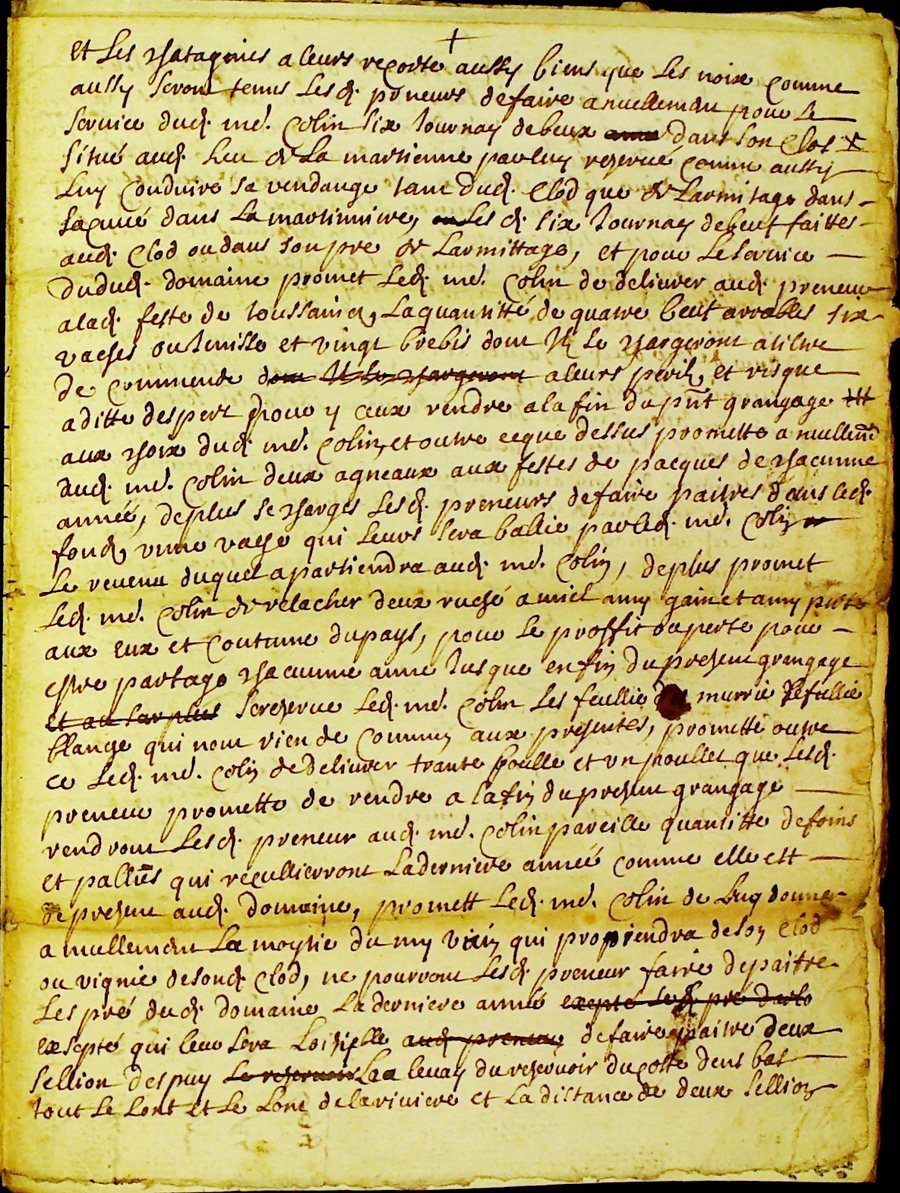 Et Les chatagnies a leurs recorte aussy biens que Les noix comme
aussy seront tenus Lesd. preneurs de faire annuellement pour Le
service dud. me. Colin six Journay de beux dans son Clos
situé aud. Lieu de La martienne par luy reservé comme aussy
Luy Conduire sa vendange tant dud. Clod que de Larmitage dans
sa cuvé dans La martiniere, Les d. six Journay de beuf faittes
aud. Clod ou dans son pre de Larmittage, et pour Le service
dudud. domaine promet Led. me. Colin de delivrer aud. preneur
a lad. feste de toussainct, La quantitté de quatre beut arrables six
vaches ou Jenisse et vingt brebis dont Ils Se chargeront a tiltre
de commende dont Ils Se chargeront a leurs peril, et risque
a ditte despert pour y ceux rendre a la fin du pnt grangage
aux choix dud. me. Colin, et outre ce que dessus promette annuellent
aud. me. Colin deux agneaux aux festes de pacques de chacunne
année, de plus se charges Lesd. preneurs de faire paitres dans led.
fond, unne vache qui Leurs sera ballie par led. me. Colin
Le revenu duquel apartiendra aud. me. Colin, de plus promet
Led. me. Colin de relacher deux ruché a miel amy gain et amy perte
aux eux et Coutume du pays, pour Le proffit ou perte pour
estre partage chacunne anne Jusque en fin du present grangage
et au surplus se reserve Led. me. Colin Les feullie murrié
blange qui nont rien de Commun aux presentes, promette outre
ce Led. me. Colin de delivrer trante poulle et un poullet que Lesd.
preneur promette de rendre a la fin du present grangage
rendront Lesd. preneur aud. me. Colin pareille quantitte de foins
et pallies qui recullierront La derniere année comme elle est
de present aud. domaine, promett Led. me. Colin de Luy donner
annullement La moytie du my vin qui proviendra de son Clod
ou vignie de soud. Clod, ne pourront Lesd. preneur faire depaitre
Les pré dud. domaine La derniere anné excepté Led. pré
exsepté qui leur sera Loisiblle aud. preneur de faire paitre deux
sellion despuy Le reservoir La levay du reservoir du cotte dens bas
tout Le Lont et Le Lont de la riviere et La distance de deux sellion